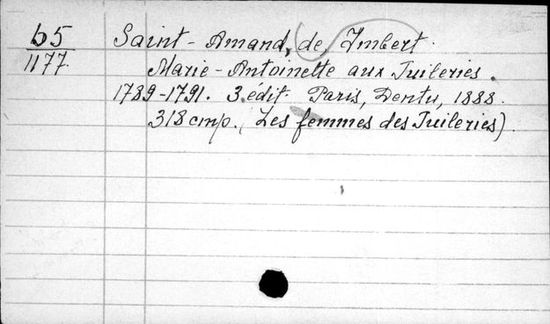 65
1177
Saint-Amand, de, Imbert.
Marie-Antoinette aux Tuileries.
1789-1791. 3. édit Paris, Dentu, 1888.
318 стр. (Les femmes des Tuileries).